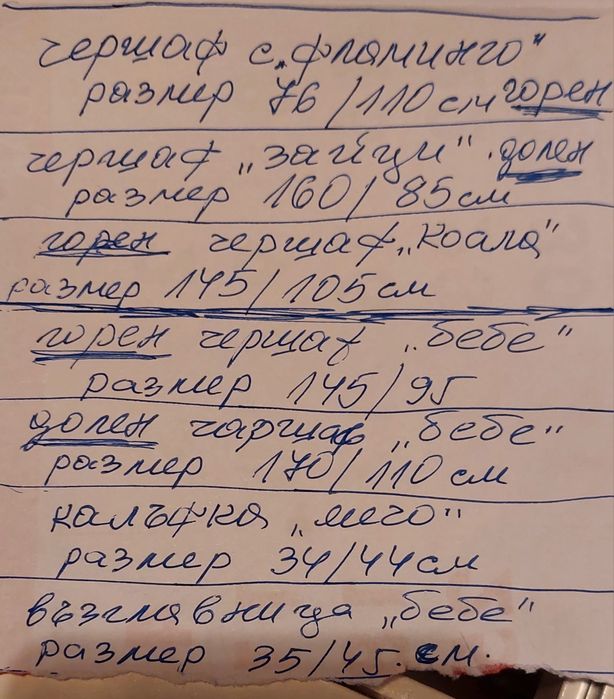 чершаф с „фламинго"
размер 76/110 см горен
чершаф „зайци" долен
размер 160/85 см
горен чершаф „Коала"
размер 145/105 см
горен чершаф „бебе"
размер 145/95
долен чаршаф „бебе"
размер 170/110 см
калъфка „мечо"
размер 34/44 см
възглавница „бебе"
размер 35/45. см.